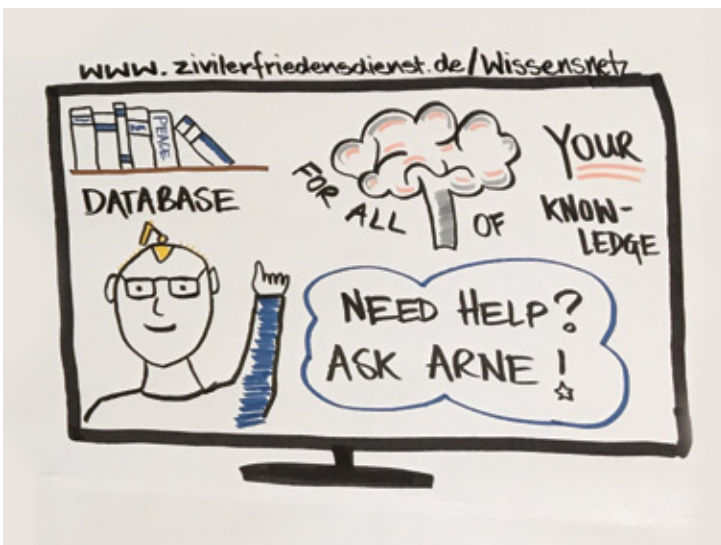 www.zivilerfriedensdienst.de/Wissensnetz
PEACE
DATABASE
FOR ALL OF
YOUR
KNOW-
LEDGE
NEED HELP?
ASK ARNE!